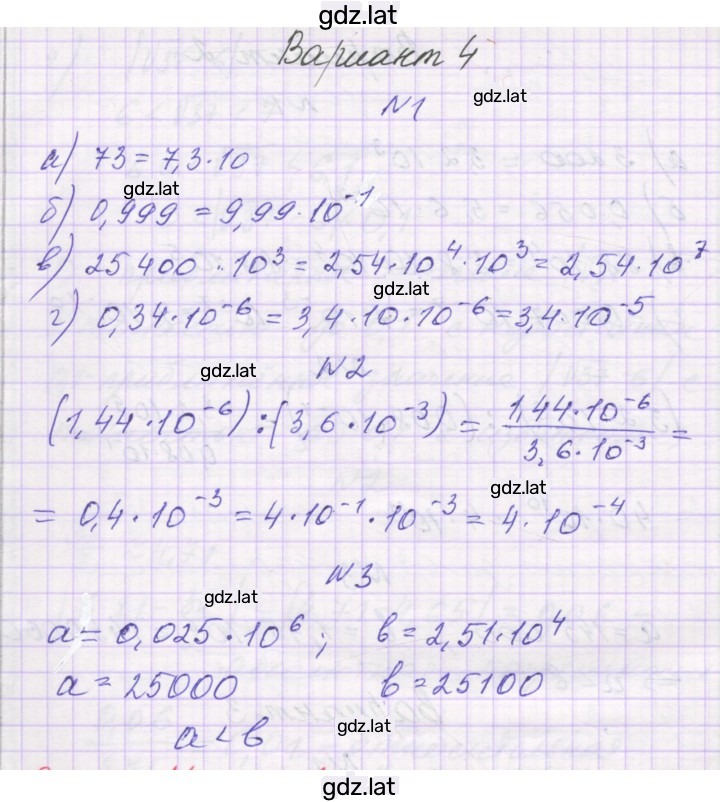 gdz.lat
Вариант 4
N1
gdz.lat
а) 73 = 7,3·10
gdz.lat
б) 0,999 = 9,99·10⁻¹
в) 25400·10³ = 2,54·10⁴·10³ = 2,54·10⁷
gdz.lat
г) 0,34·10⁻⁶ = 3,4·10·10⁻⁶ = 3,4·10⁻⁵
gdz.lat
N2
(1,44·10⁻⁶):(3,6·10⁻³) = 1,44·10⁻⁶ / 3,6·10⁻³ =
gdz.lat
= 0,4·10⁻³ = 4·10⁻¹·10⁻³ = 4·10⁻⁴
N3
gdz.lat
a = 0,025·10⁶; b = 2,51·10⁴
a = 25000 b = 25100
gdz.lat
a < b
gdz.lat